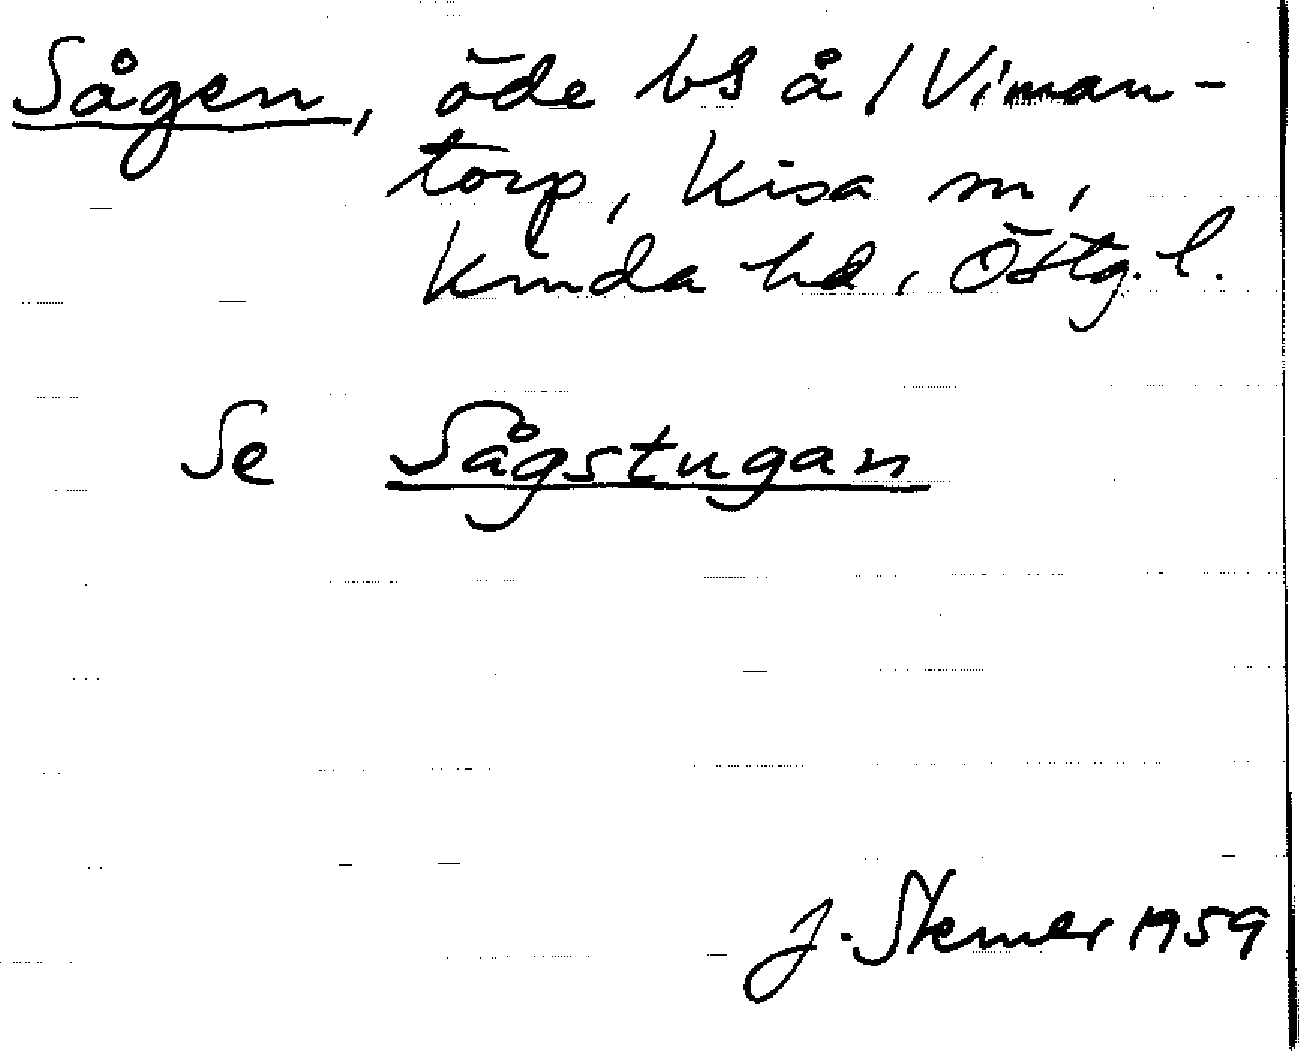 Sågen, öde bs å / Viman-
torp, Kisa sn,
Kinda hd, Östg. l.
Se Sågstugan
J. Sterner 1959